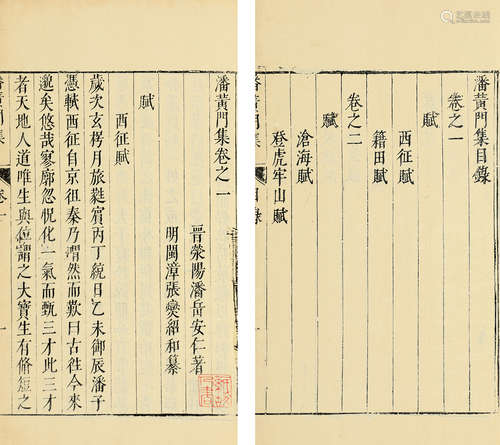 潘黃門集目錄
卷之一
賦
西征賦
籍田賦
卷之二
賦
滄海賦
登虎牢山賦
目錄
潘黃門集卷之一
晉滎陽潘岳安仁著
明閩漳張燮紹和纂
賦
西征賦
歲次玄枵月旅蕤賓丙丁統日乙未御辰潘子
憑軾西征自京徂秦乃喟然而歎曰古往今來
邈矣悠哉寥廓忽怳化一氣而甄三才此三才
者天地人道唯生與位謂之大寶生有脩短之
潘黃門集
卷一
一